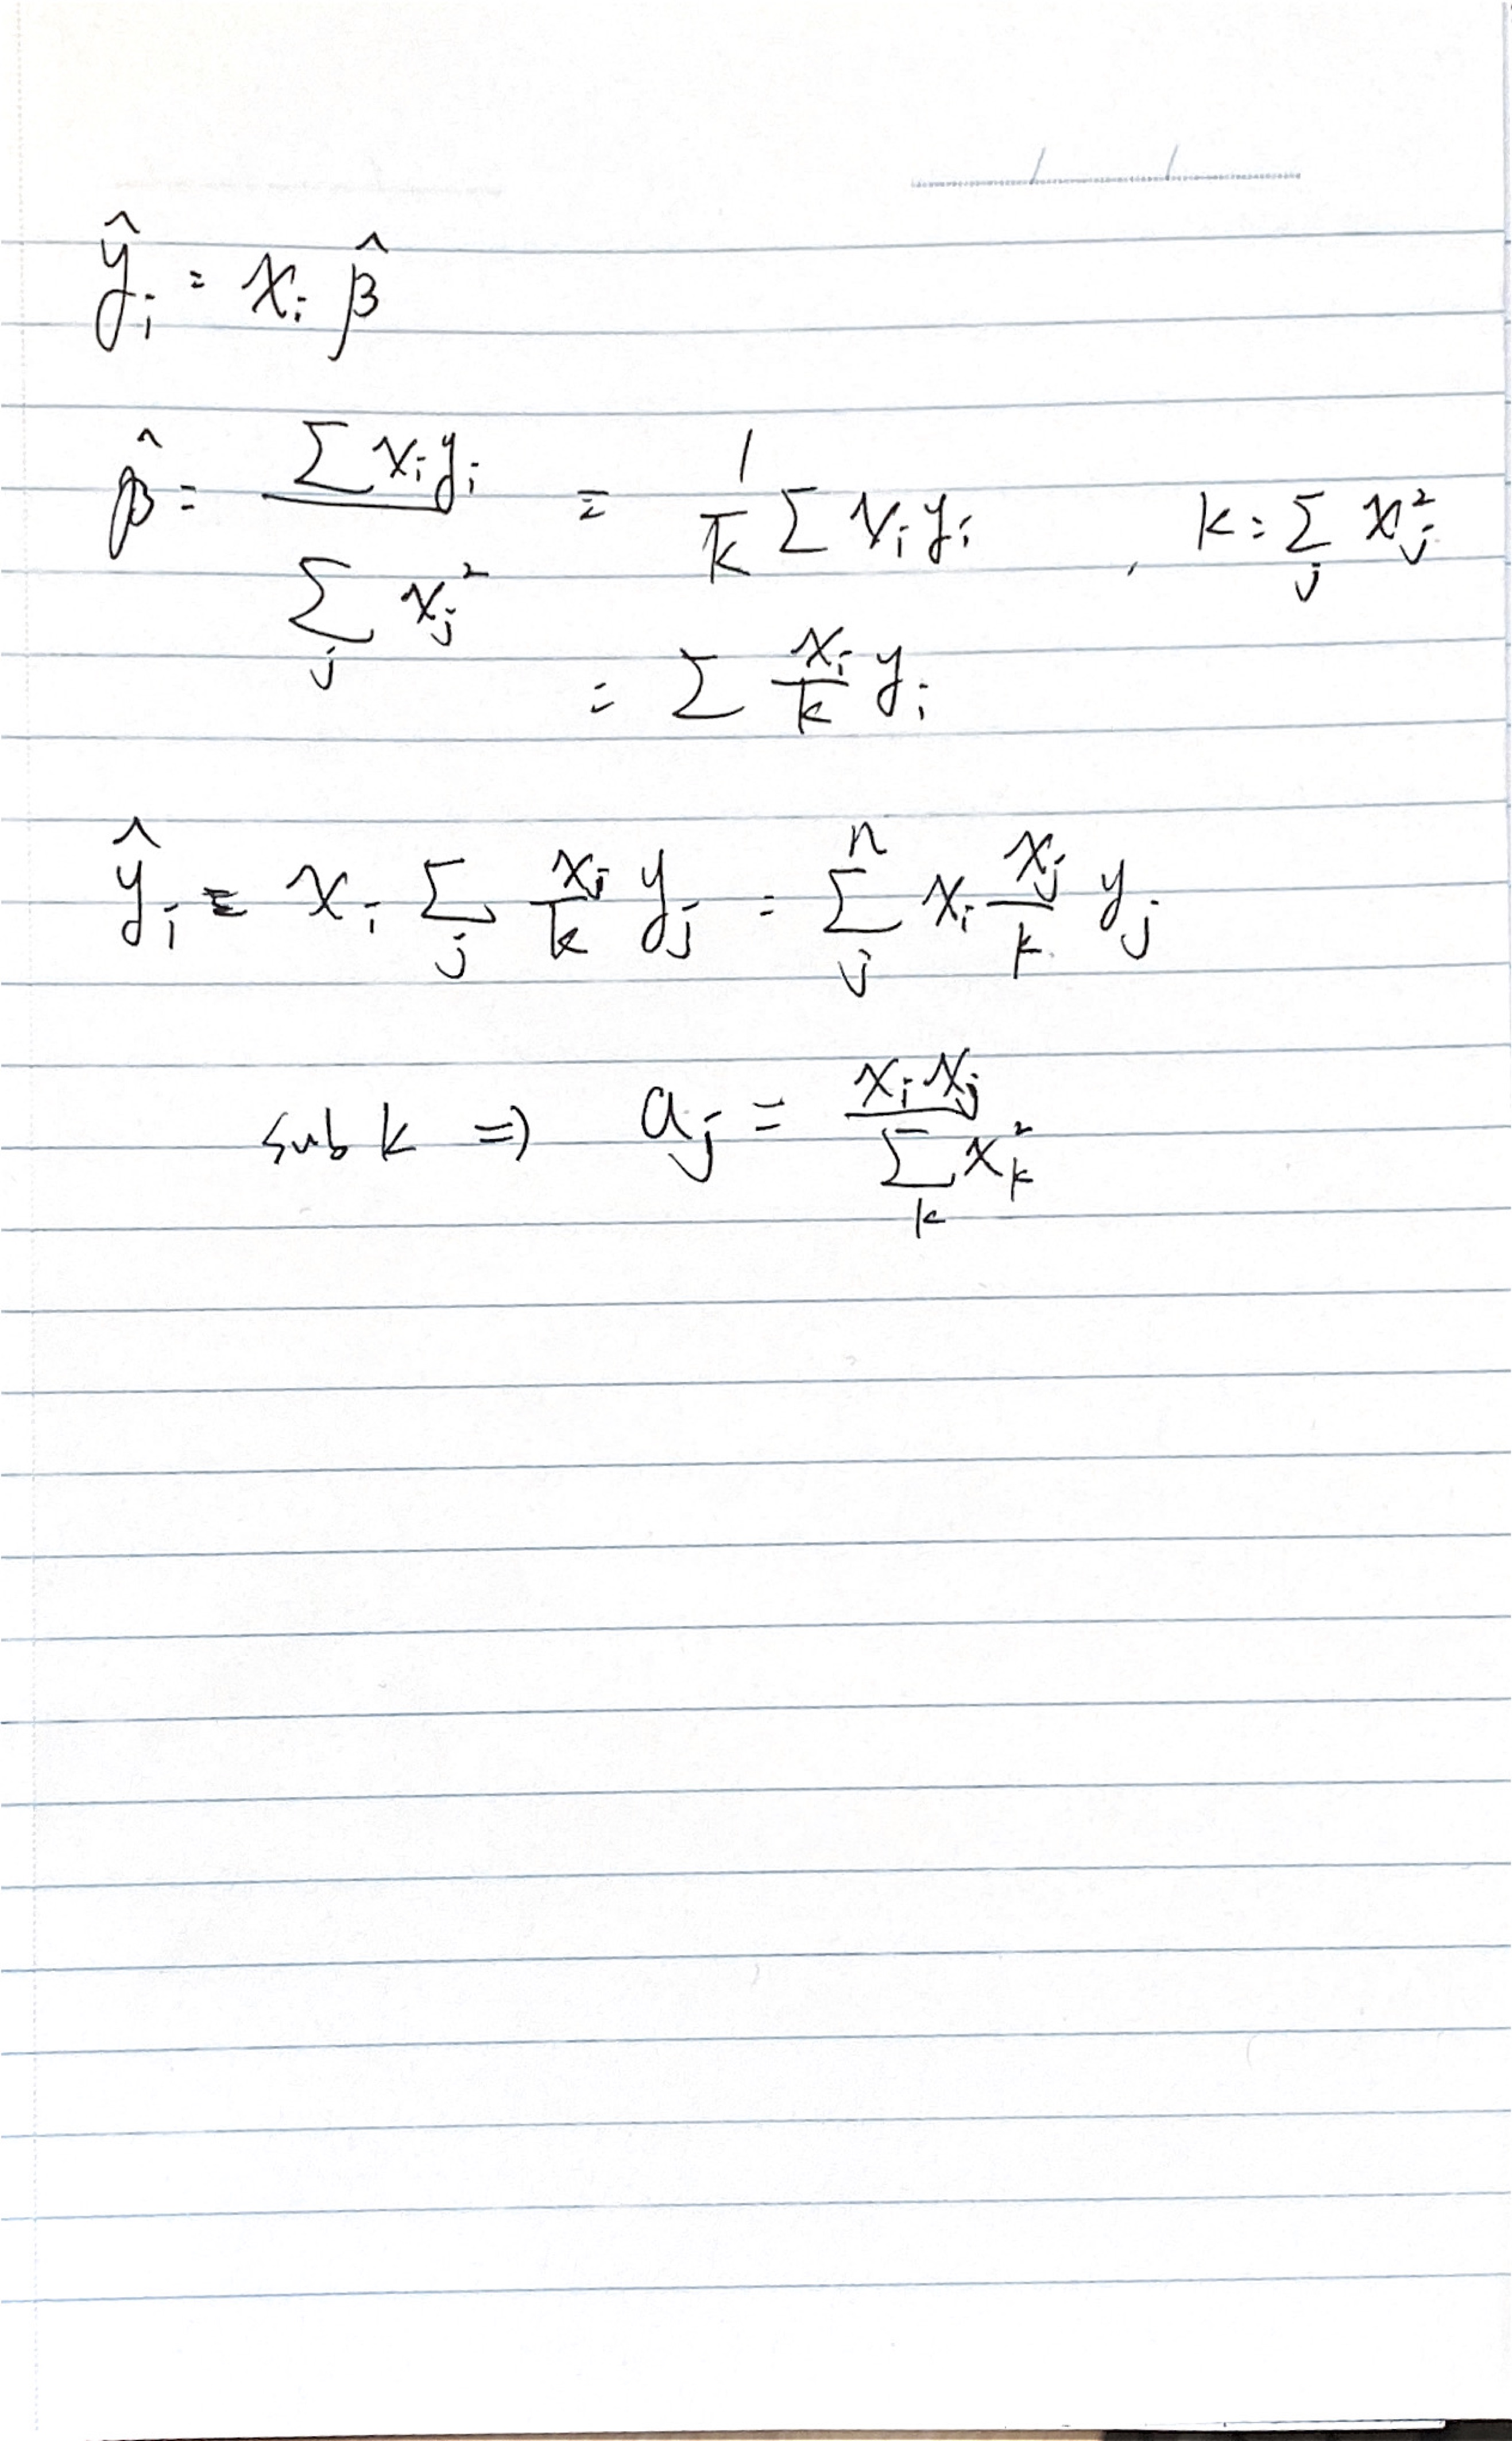 ŷᵢ = xᵢ β̂
β̂ = ∑ xᵢyᵢ / ∑ⱼ xⱼ² = 1/k ∑ xᵢ yᵢ , k = ∑ⱼ xⱼ²
= ∑ xᵢ/k yᵢ
ŷᵢ = xᵢ ∑ⱼ xⱼ/k yⱼ = ∑ⱼⁿ xᵢ xⱼ/k yⱼ
sub k ⇒ aⱼ = xᵢ xⱼ / ∑ₖ xₖ²